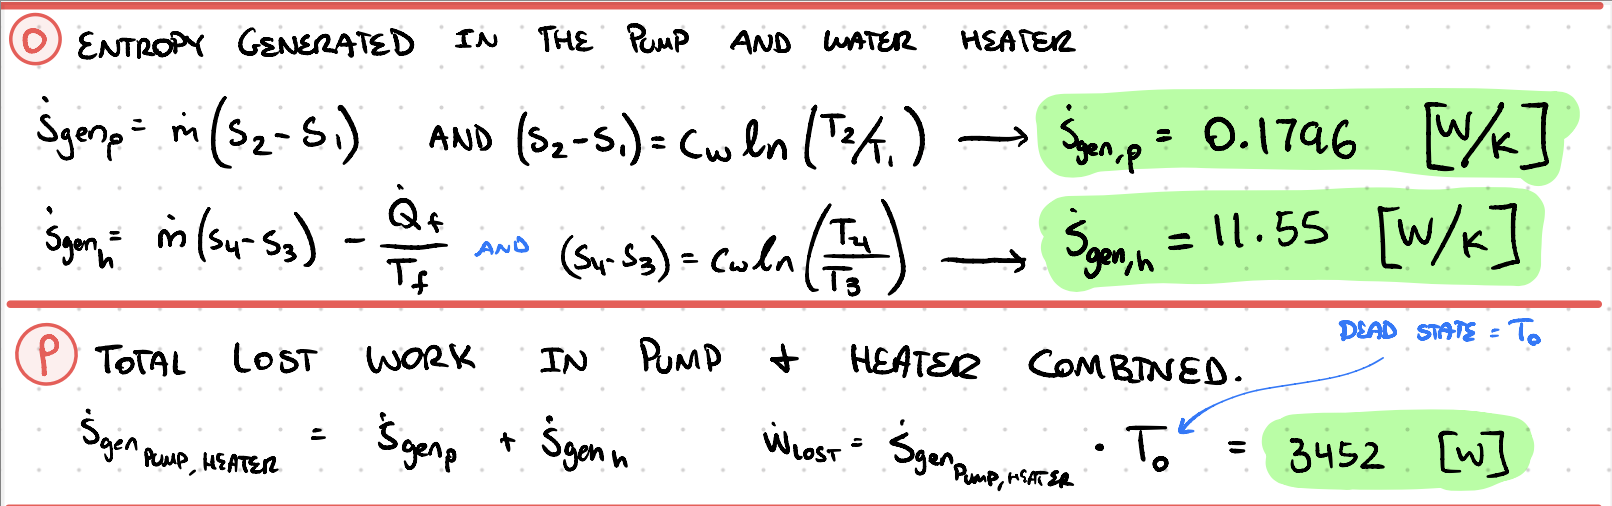 O ENTROPY GENERATED IN THE PUMP AND WATER HEATER
Ṡgen_p = ṁ(S₂-S₁) AND (S₂-S₁) = Cw ln(T₂/T₁) → Ṡgen,p = 0.1796 [W/K]
Ṡgen_h = ṁ(S₄-S₃) - Q̇f/Tf AND (S₄-S₃) = Cw ln(T₄/T₃) → Ṡgen,h = 11.55 [W/K]
DEAD STATE = T₀
P TOTAL LOST WORK IN PUMP + HEATER COMBINED.
Ṡgen_PUMP,HEATER = Ṡgen_p + Ṡgen_h Ẇ_LOST = Ṡgen_PUMP,HEATER · T₀ = 3452 [W]